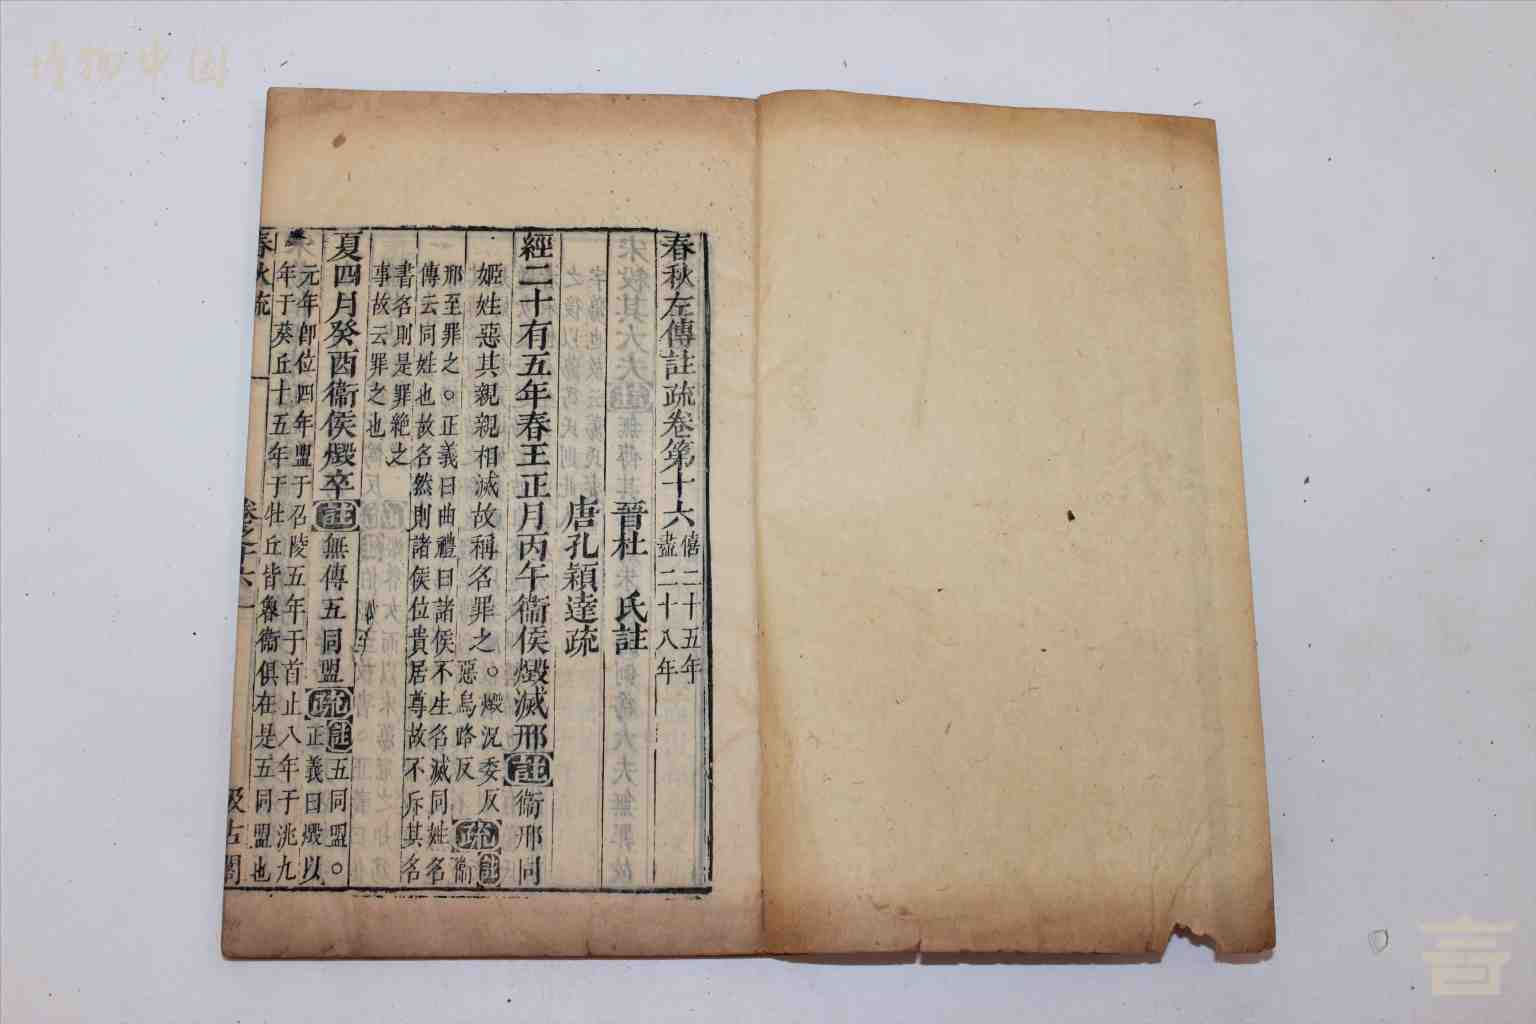 春秋左傳註疏卷第十六 僖二十五年 盡二十八年
晉杜 氏註
唐孔穎達疏
經二十有五年春王正月丙午衞侯燬滅邢 註 衞邢同
姬姓惡其親親相滅故稱名罪之○燬況委反
惡烏路反 疏 註 衞
邢至罪之○正義曰曲禮曰諸侯不生名滅同姓名
傳云同姓也故名然則諸侯位貴居尊故不斥其名
書名則是罪絶之
事故云罪之也
夏四月癸酉衞侯燬卒 註 無傳五同盟 疏 註 五同盟○
正義曰燬以
元年卽位四年盟于召陵五年于首止八年于洮九
年于葵丘十五年于牡丘皆魯衞俱在是五同盟也
春秋疏 卷之十六 一 汲古閣
博物中国